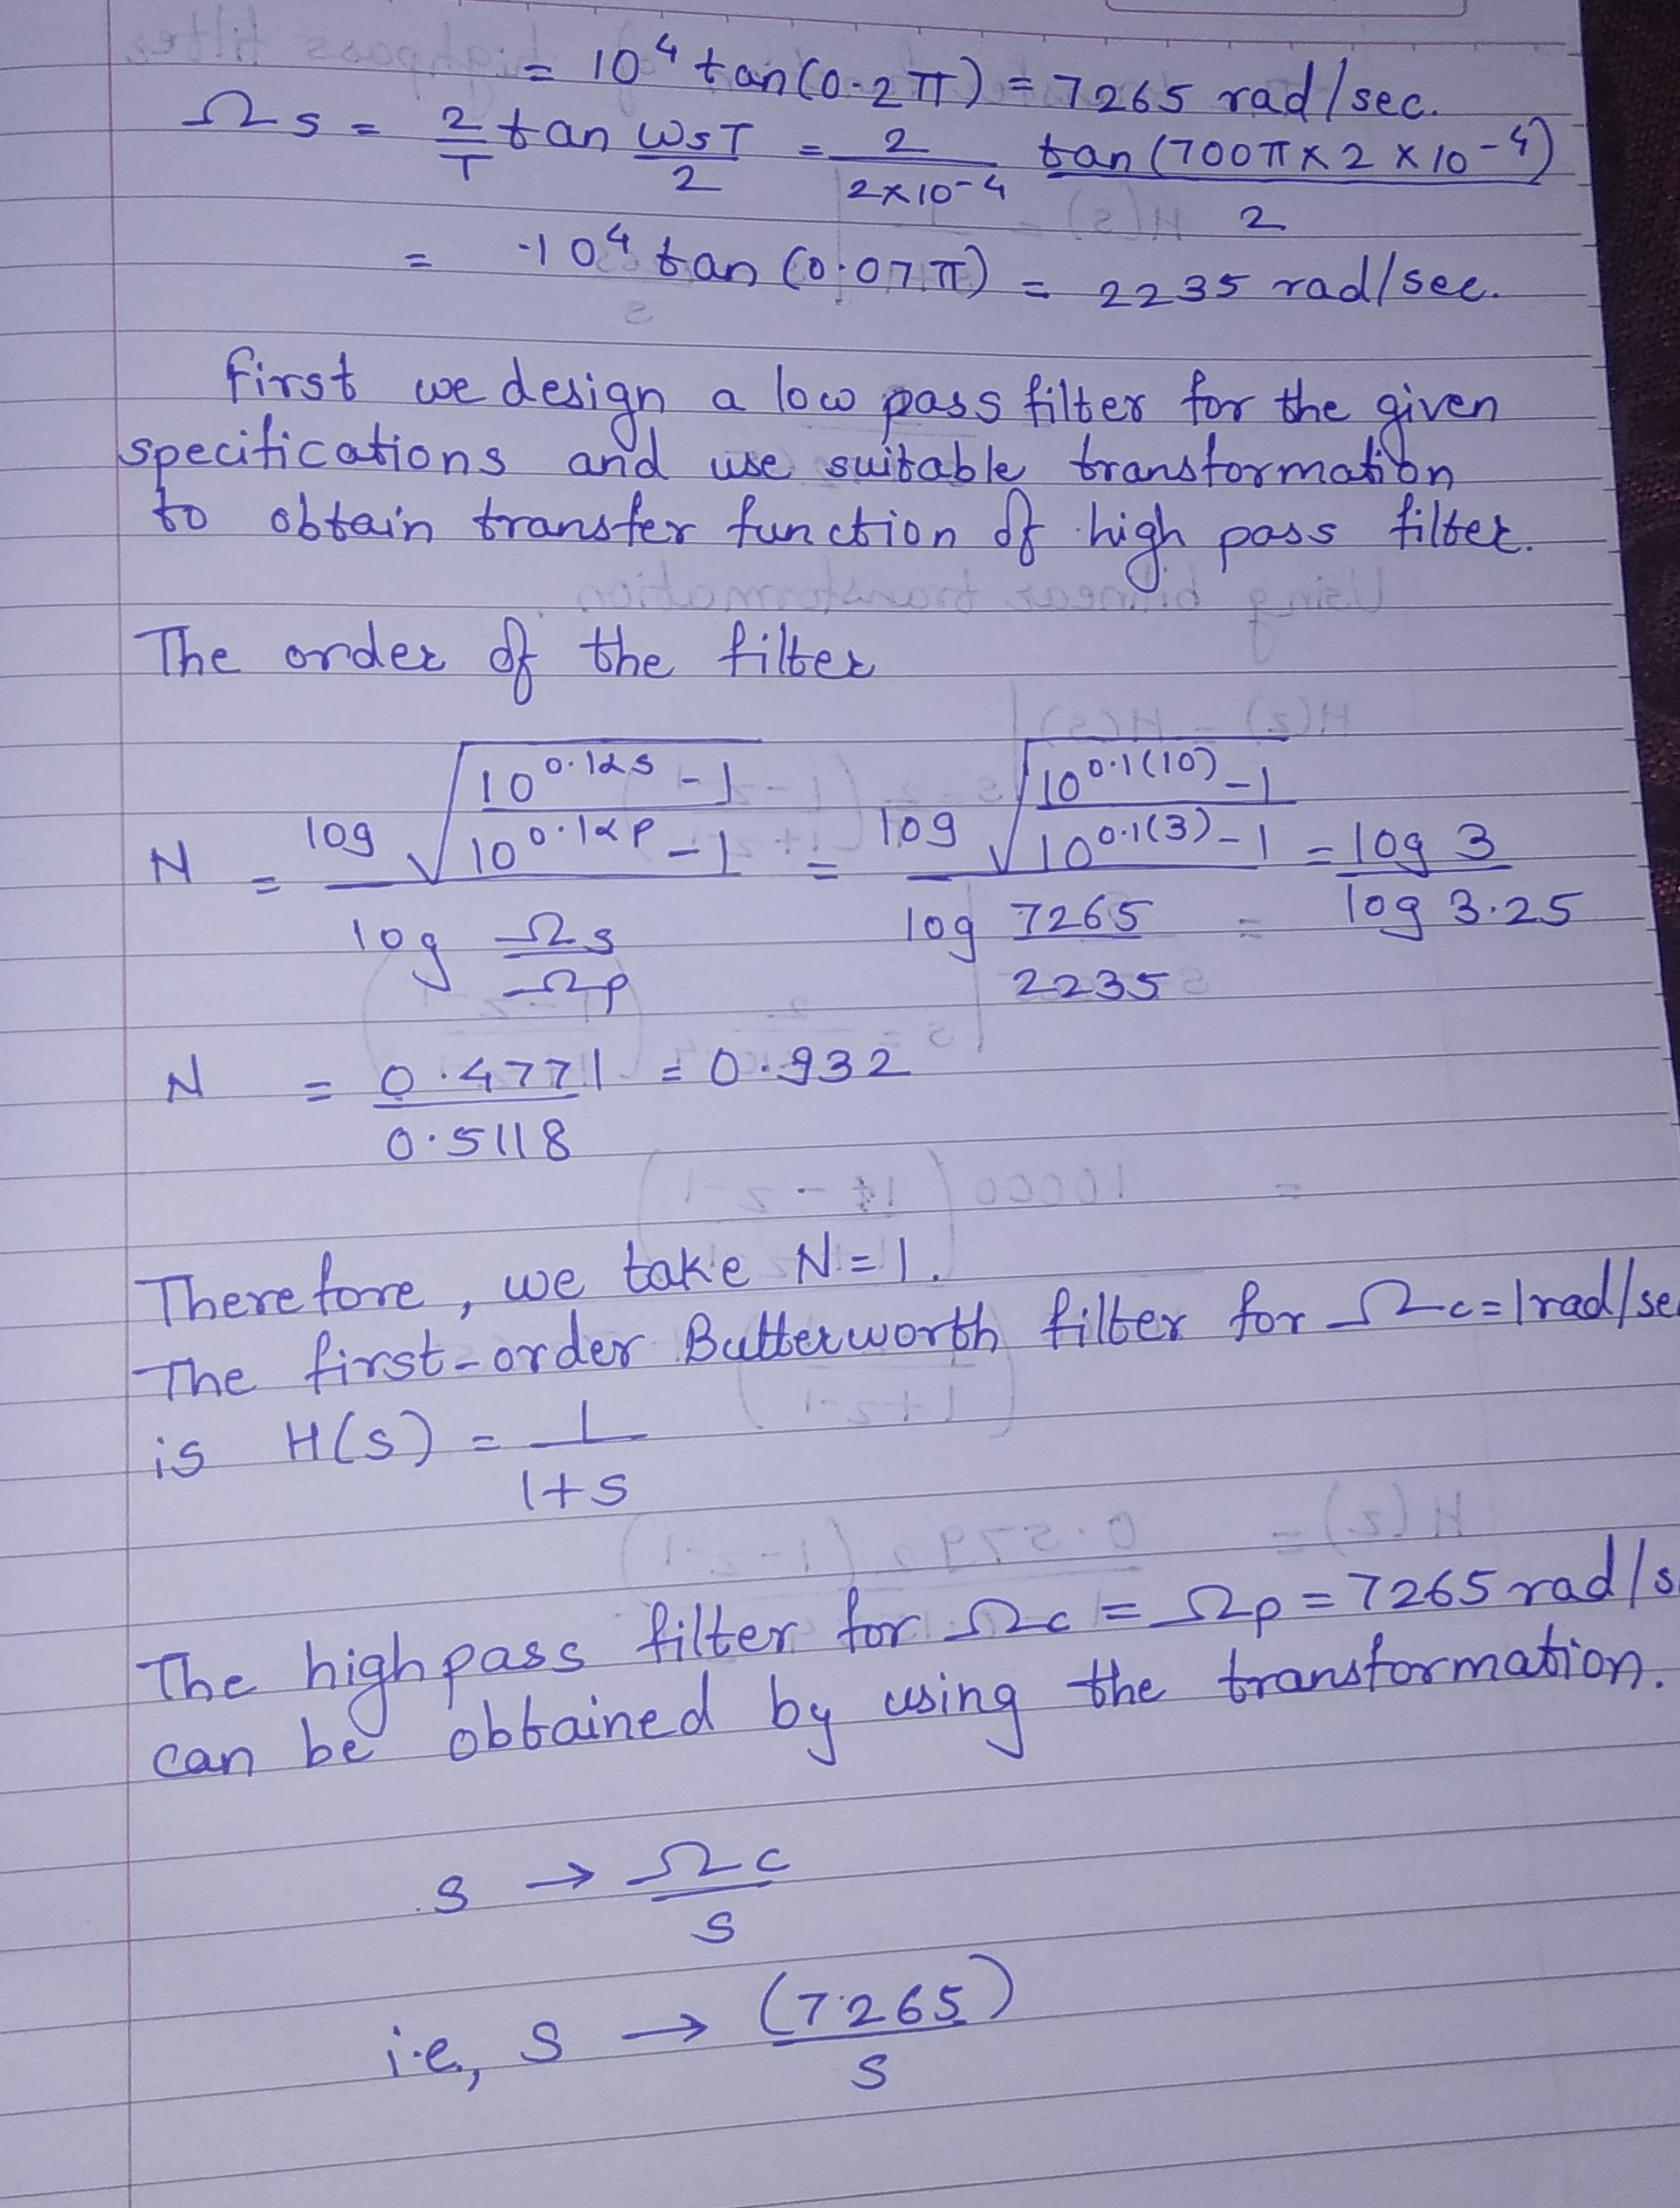 = 10⁴ tan(0.2π) = 7265 rad/sec.
Ωs = 2/T tan ωsT/2 = 2/(2×10⁻⁴) tan(700π×2×10⁻⁴)/2
= 10⁴ tan(0.07π) = 2235 rad/sec.
First we design a low pass filter for the given
specifications and use suitable transformation
to obtain transfer function of high pass filter.
The order of the filter
N = log √((10^0.1αs − 1)/(10^0.1αp − 1)) / log Ωs/Ωp = log √((10^0.1(10) − 1)/(10^0.1(3) − 1)) / log 7265/2235 = log 3 / log 3.25
N = 0.4771/0.5118 = 0.932
Therefore, we take N=1.
The first-order Butterworth filter for Ωc=1rad/se
is H(s) = 1/(1+s)
The highpass filter for Ωc = Ωp = 7265 rad/s
can be obtained by using the transformation.
s → Ωc/s
i.e, s → (7265)/s